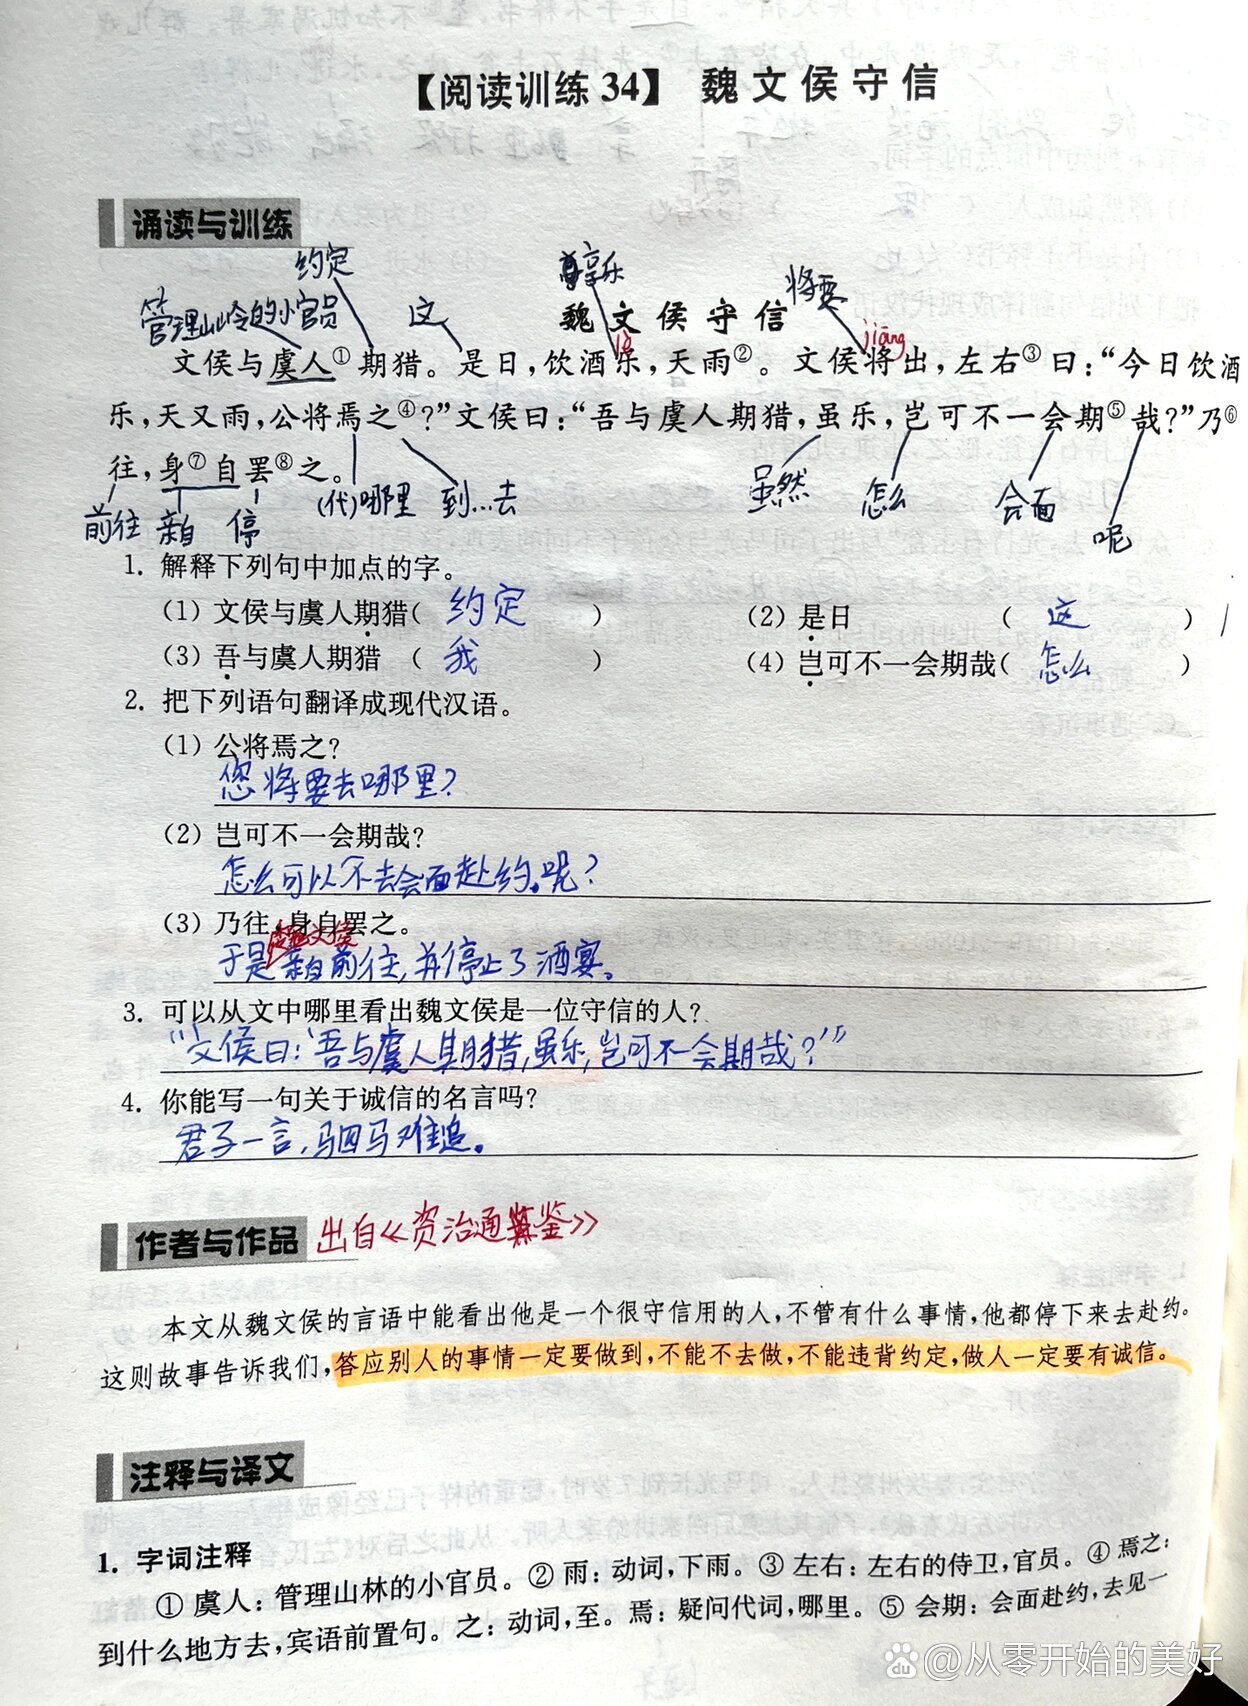 【阅读训练 34】 魏文侯守信
诵读与训练
约定
享乐
将要
管理山岭的小官员
这
魏文侯守信
lè
jiāng
文侯与虞人①期猎。是日,饮酒乐,天雨②。文侯将出,左右③曰:“今日饮酒
乐,天又雨,公将焉之④?”文侯曰:“吾与虞人期猎,虽乐,岂可不一会期⑤哉?”乃⑥
往,身⑦自罢⑧之。
前往 亲自 停 (代)哪里 到…去 虽然 怎么 会面 呢
1. 解释下列句中加点的字。
(1) 文侯与虞人期猎( 约定 ) (2) 是日 ( 这 )
(3) 吾与虞人期猎 ( 我 ) (4) 岂可不一会期哉( 怎么 )
2. 把下列语句翻译成现代汉语。
(1) 公将焉之?
您将要去哪里?
(2) 岂可不一会期哉?
怎么可以不去会面赴约。呢?
(3) 乃往,身自罢之。
魏文侯
于是亲自前往,并停止了酒宴。
3. 可以从文中哪里看出魏文侯是一位守信的人?
“文侯曰:‘吾与虞人期猎,虽乐,岂可不一会期哉?’”
4. 你能写一句关于诚信的名言吗?
君子一言,驷马难追。
作者与作品 出自《资治通鉴》
本文从魏文侯的言语中能看出他是一个很守信用的人,不管有什么事情,他都停下来去赴约。
这则故事告诉我们,答应别人的事情一定要做到,不能不去做,不能违背约定,做人一定要有诚信。
注释与译文
1. 字词注释
① 虞人:管理山林的小官员。② 雨:动词,下雨。③ 左右:左右的侍卫,官员。④ 焉之:
到什么地方去,宾语前置句。之:动词,至。焉:疑问代词,哪里。⑤ 会期:会面赴约,去见一
@从零开始的美好